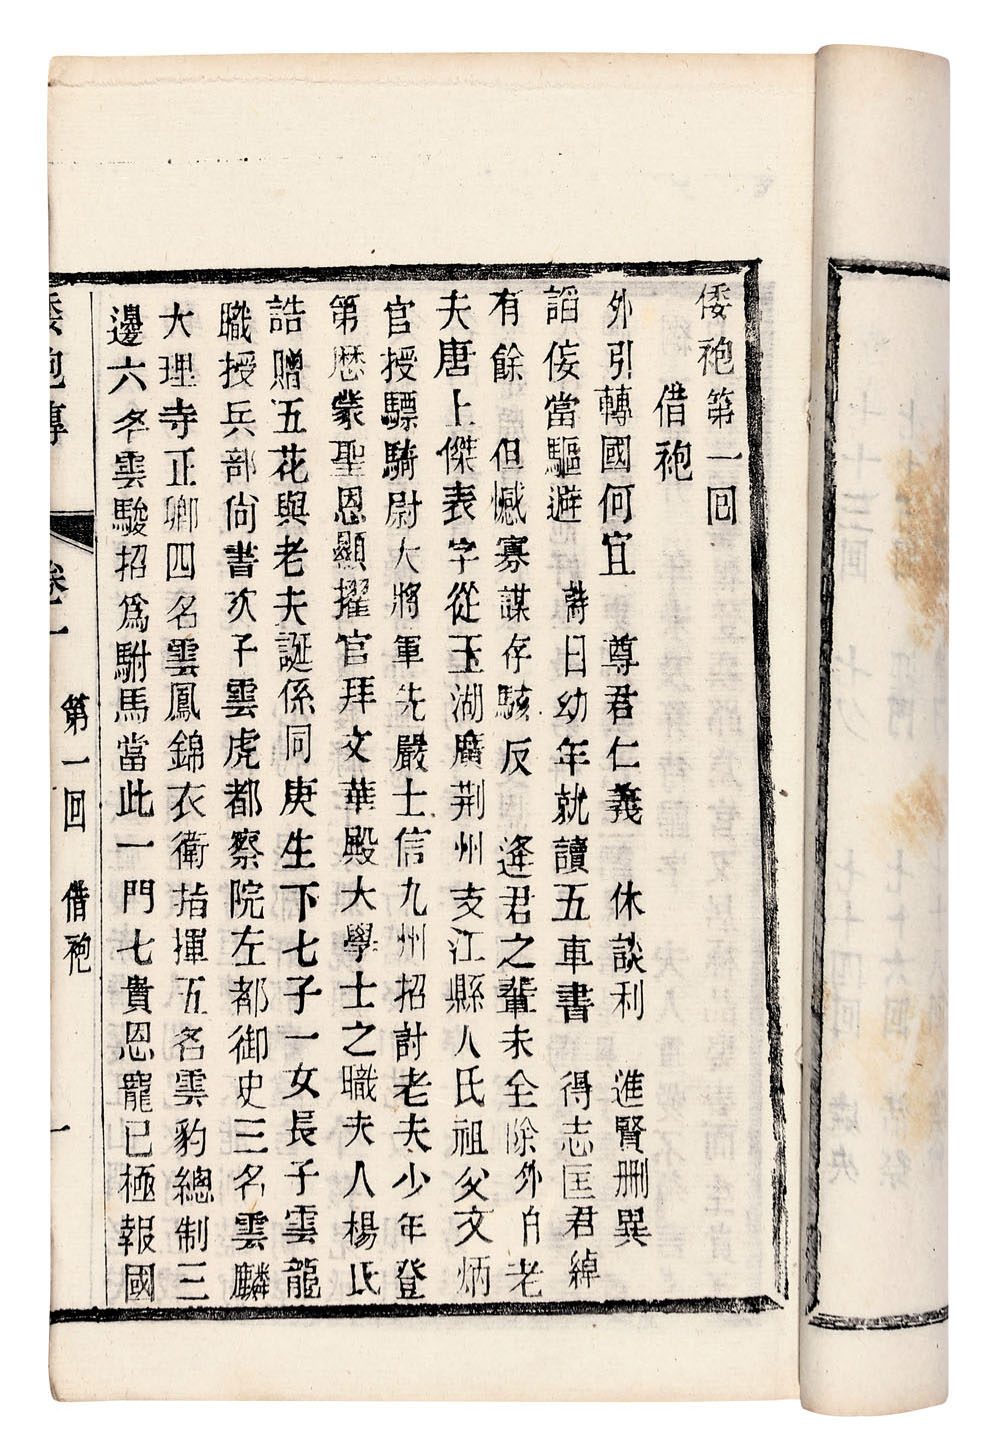 倭袍第一回
借袍
外引轉國何宜 尊君仁義 休談利 進賢删異
謟佞當驅避 詩曰幼年就讀五車書 得志匡君綽
有餘 但憾寡謀存駭反 逢君之輩未全除外白老
夫唐上傑表字從玉湖廣荆州支江縣人氏祖父文炳
官授驃騎尉大將軍先嚴士信九州招討老夫少年登
第歷蒙聖恩顯擢官拜文華殿大學士之職夫人楊氏
誥贈五花與老夫誕係同庚生下七子一女長子雲龍
職授兵部尙書次子雲虎都察院左都御史三名雲麟
大理寺正卿四名雲鳳錦衣衛指揮五名雲豹總制三
邊六名雲駿招爲駙馬當此一門七貴恩寵已極報國
倭袍傳 卷一 第一回 借袍 一